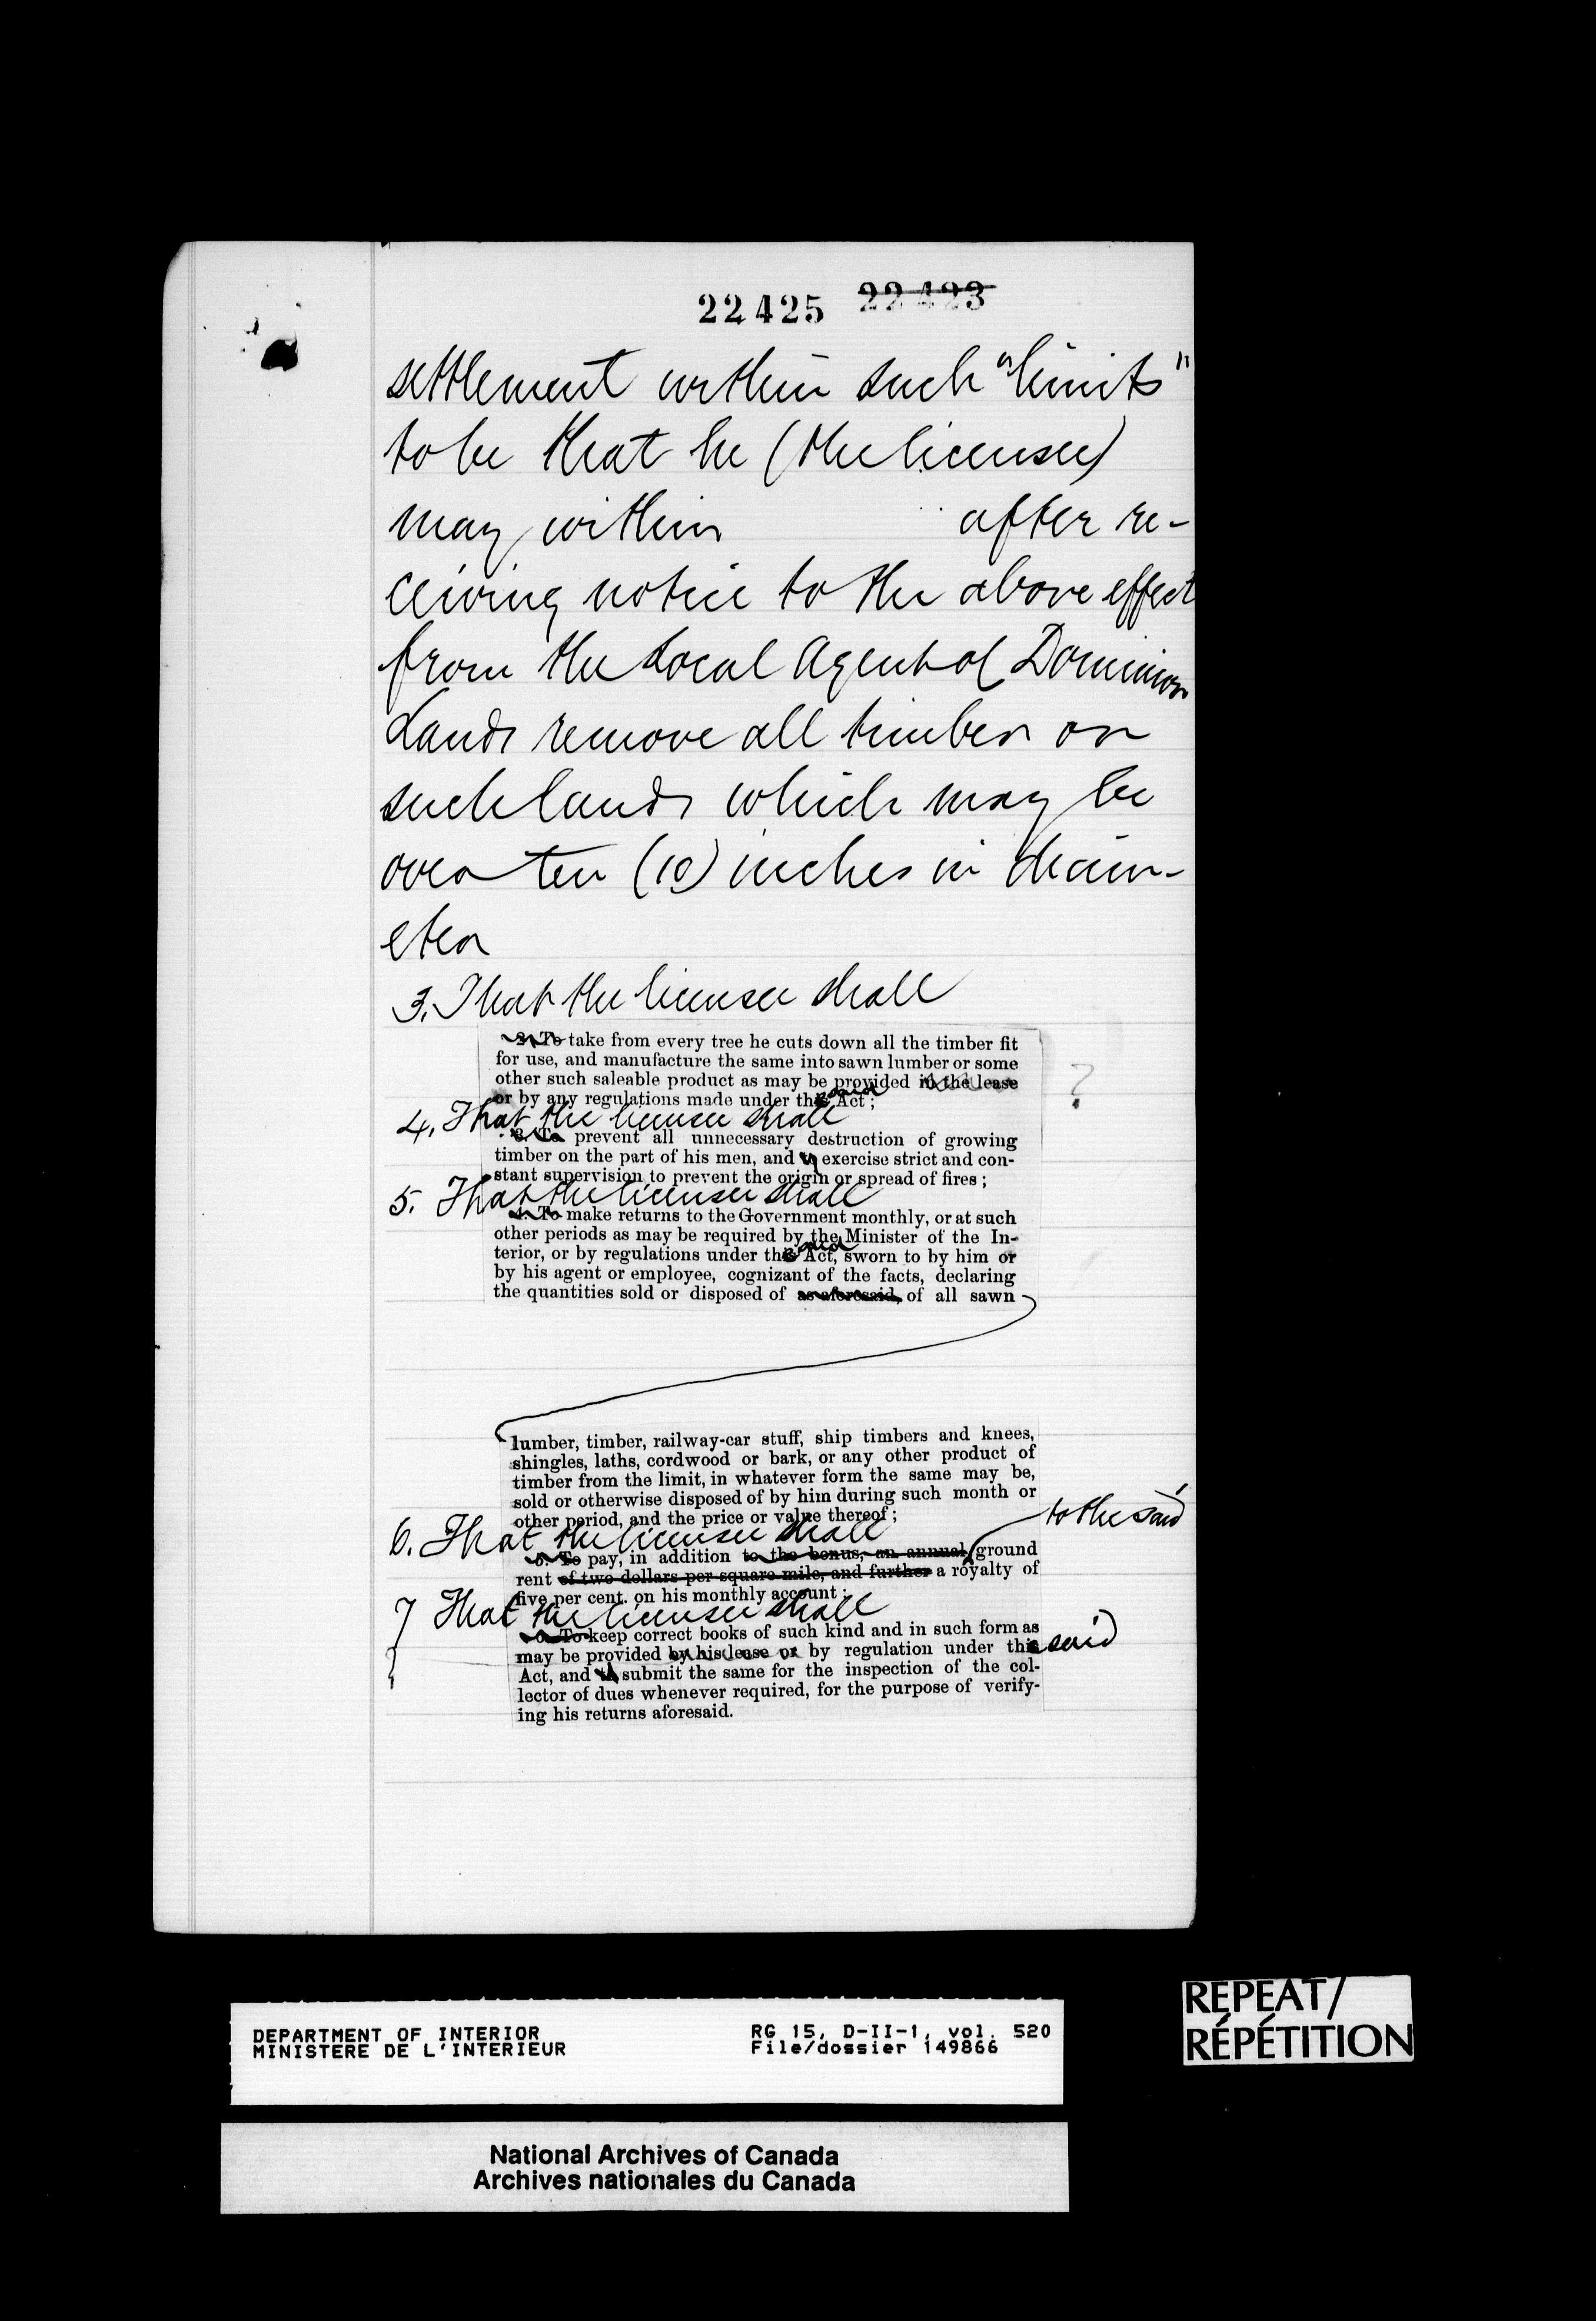 22425 22423
settlement within such "limits"
to be that he (the licensee)
may within after re-
ceiving notice to the above effect
from the Local Agent of Dominion
Lands remove all timber on
such lands which may be
over ten (10) inches in diam-
eter
3. That the licensee shall
2. To take from every tree he cuts down all the timber fit
for use, and manufacture the same into sawn lumber or some
other such saleable product as may be provided in the lease
or by any regulations made under the said Act;
4. That the licensee shall
3. To prevent all unnecessary destruction of growing
timber on the part of his men, and to exercise strict and con-
stant supervision to prevent the origin or spread of fires;
5. That the licensee shall
4. To make returns to the Government monthly, or at such
other periods as may be required by the Minister of the In-
terior, or by regulations under the said Act, sworn to by him or
by his agent or employee, cognizant of the facts, declaring
the quantities sold or disposed of as aforesaid, of all sawn
lumber, timber, railway-car stuff, ship timbers and knees,
shingles, laths, cordwood or bark, or any other product of
timber from the limit, in whatever form the same may be,
sold or otherwise disposed of by him during such month or
other period, and the price or value thereof;
6. That the licensee shall
to the said
5. To pay, in addition to the bonus, an annual ground
rent of two dollars per square mile, and further a royalty of
five per cent. on his monthly account;
7 That the licensee shall
6. To keep correct books of such kind and in such form as
may be provided by his lease or by regulation under the said
Act, and to submit the same for the inspection of the col-
lector of dues whenever required, for the purpose of verify-
ing his returns aforesaid.
?
DEPARTMENT OF INTERIOR
MINISTERE DE L'INTERIEUR
RG 15, D-II-1, vol. 520
File/dossier 149866
REPEAT/
RÉPÉTITION
National Archives of Canada
Archives nationales du Canada